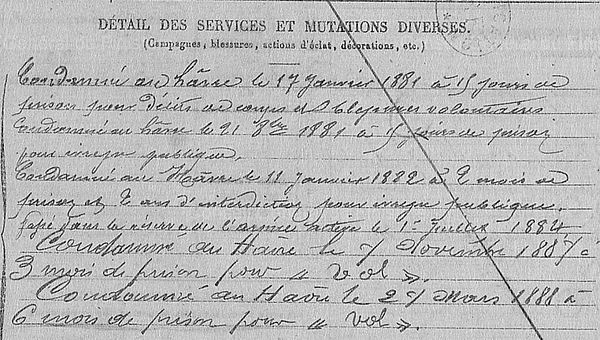 DÉTAIL DES SERVICES ET MUTATIONS DIVERSES.
(Campagnes, blessures, actions d'éclat, décorations, etc.)
Condamné au hâvre le 17 Janvier 1881 à 15 jours de
prison pour délits de coups et blessures volontaires
Condamné au hâvre le 21 8bre 1881 à 15 jours de prison
pour ivresse publique.
Condamné au Hâvre le 11 Janvier 1882 à 2 mois de
prison et 2 ans d'interdiction pour ivresse publique.
Passé dans la réserve de l'armée active le 1er Juillet 1884
Condamné au Havre le 7 Novembre 1887 à
3 mois de prison pour « vol ».
Condamné au Havre le 27 Mars 1888 à
6 mois de prison pour « vol ».